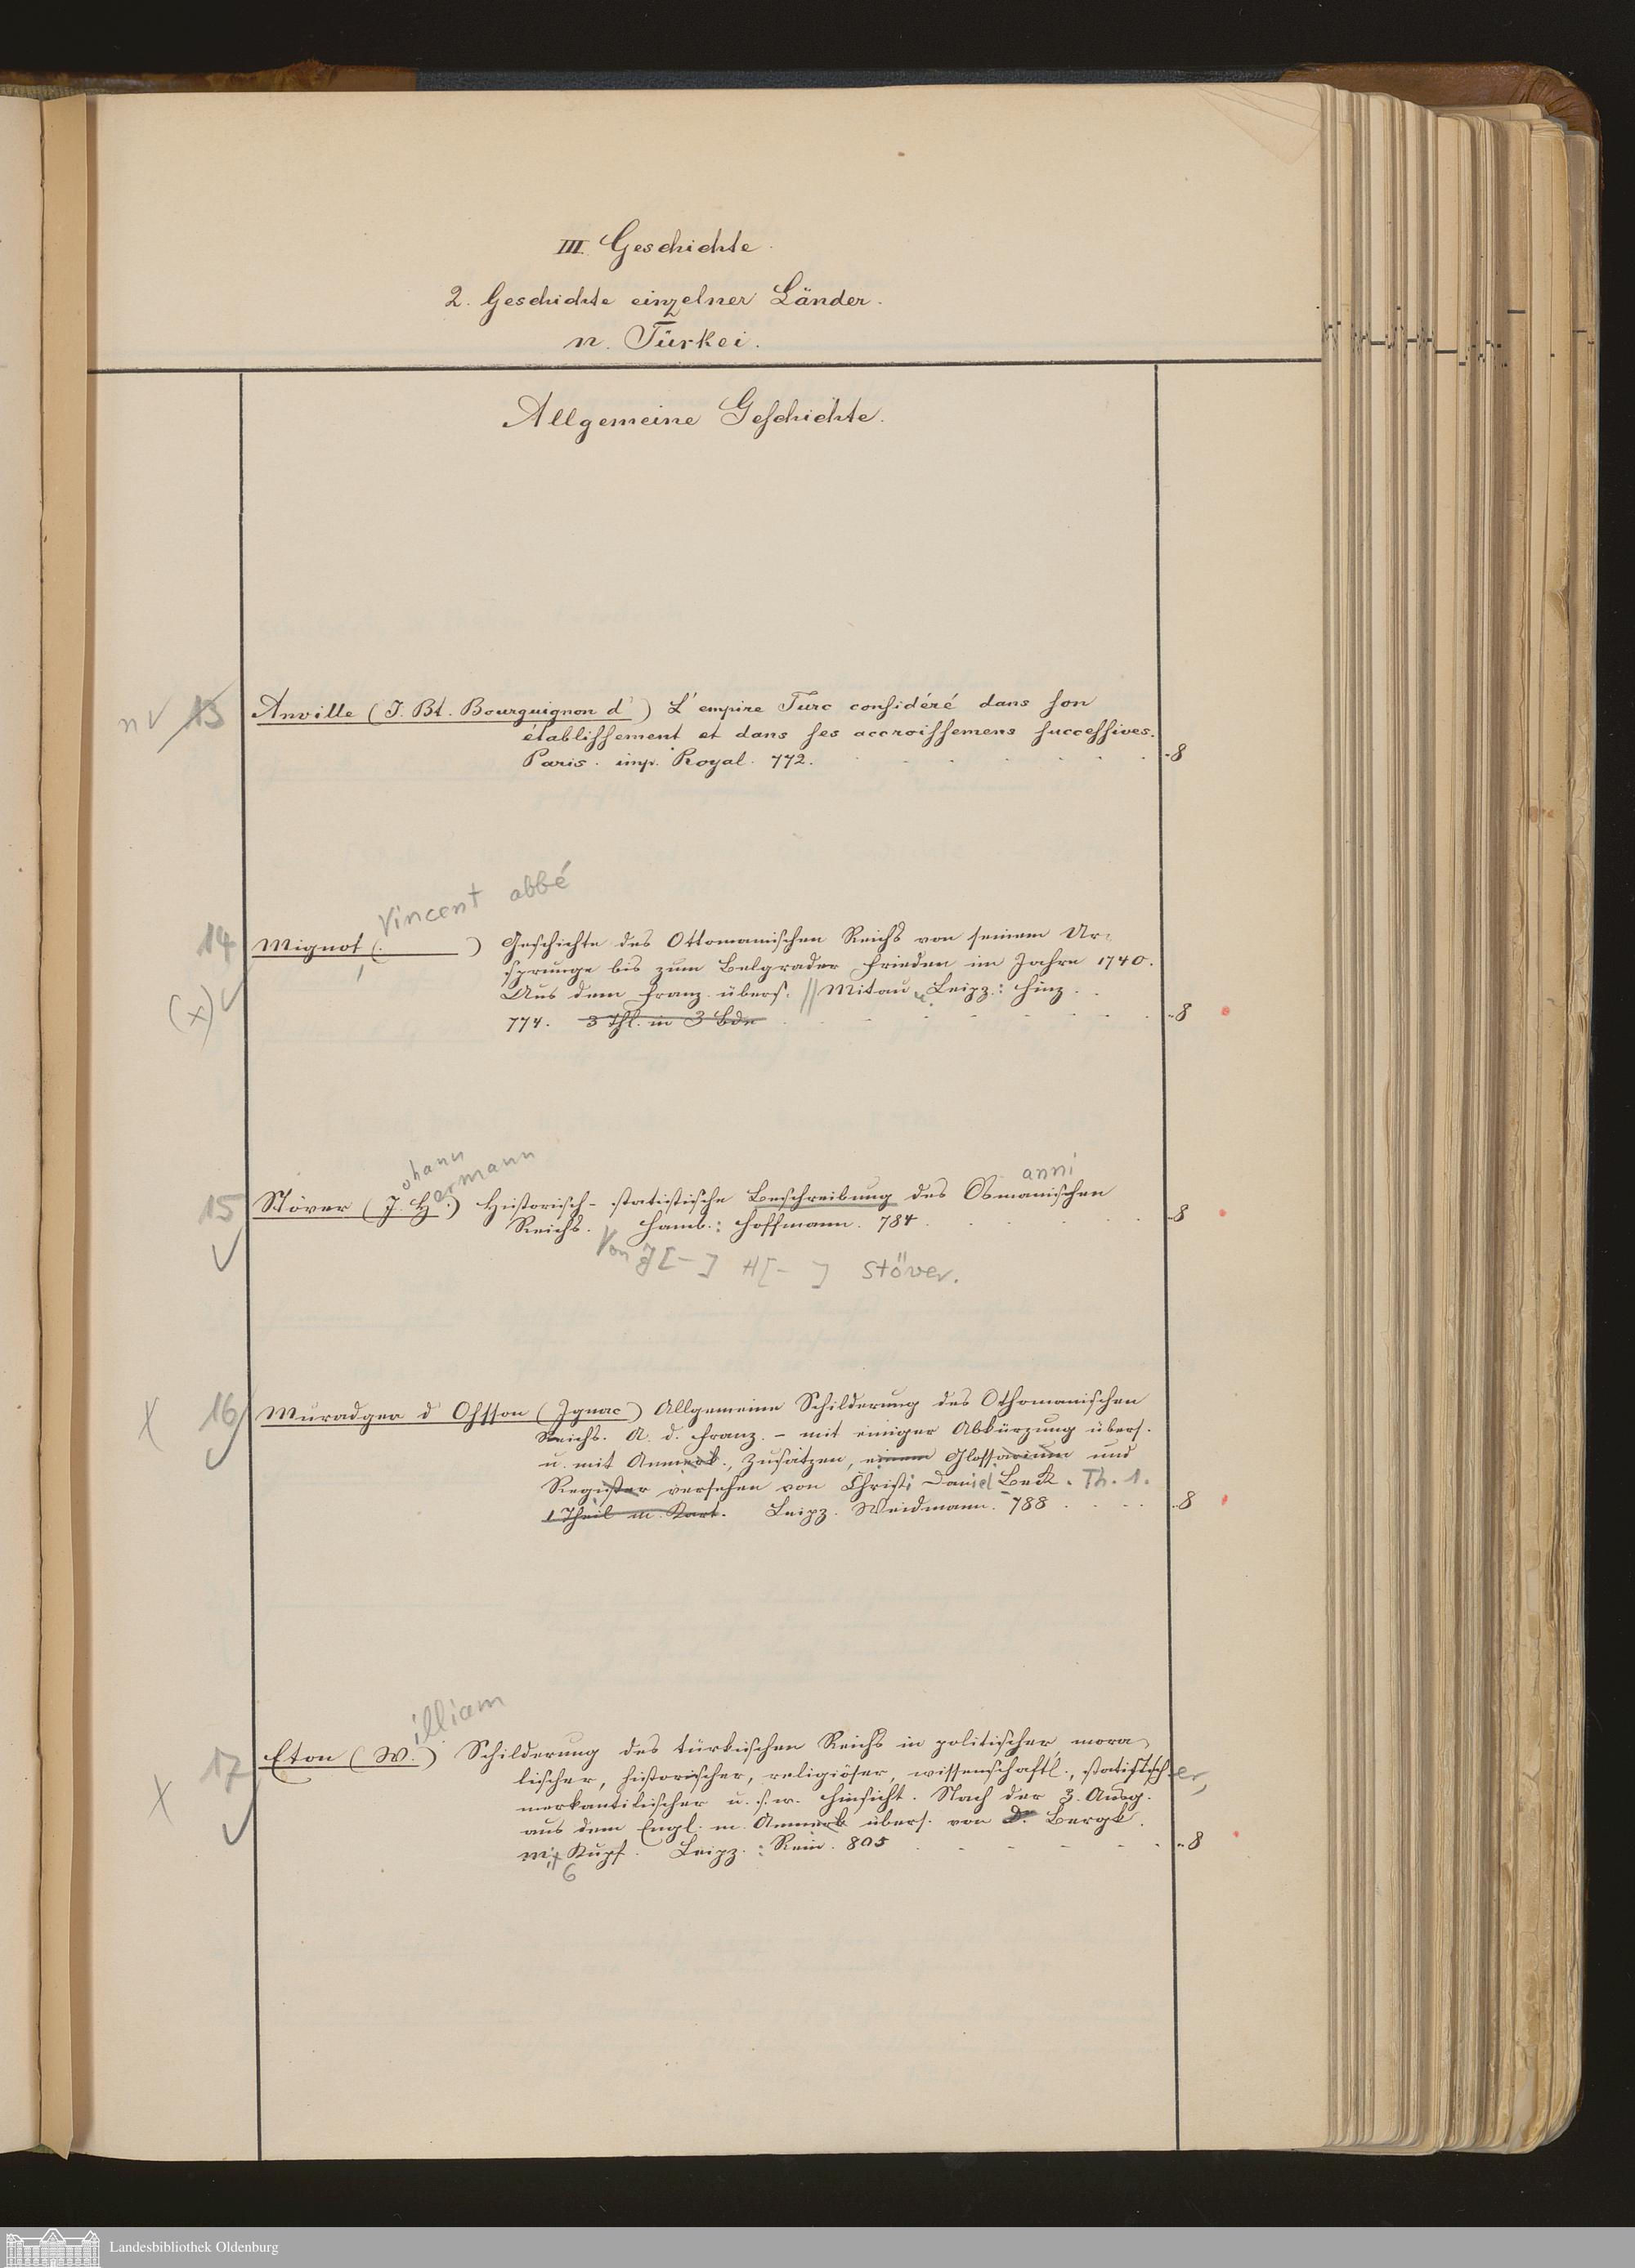 III. Geschichte.
2. Geschichte einzelner Länder.
n. Türkei.
Allgemeine Geschichte.
n √ 13 Anville (J. Bt. Bourguignon d') L'empire Turc considéré dans son
établissement et dans ses accroissemens successives.
Paris. imp. Royal. 772. 8
Vincent abbé
14 Mignot, ( ) Geschichte des Ottomanischen Reichs von seinem Ur-
sprunge bis zum Belgrader Frieden im Jahre 1740.
(x) √ Aus dem Franz. übers. // Mitau u. Leipz.: Hinz.
774. 3 Thl. in 3 Bdn 8
ohann ermann anni
15 Stöver (J. H.) Historisch-statistische Beschreibung des Osmanischen
√ Reichs. Hamb.: Hoffmann. 784. 8
Von J[-] H[-] Stöver.
X 16 Muradgea d'Ohsson (Ignac) Allgemeine Schilderung des Othomanischen
√ Reichs. A. d. Franz. - mit einiger Abkürzung übers.
u. mit Anmerk., Zusätzen, einem Glossarium und
Register versehen von Christi Daniel Beck. Th. 1.
1 Theil m. Kart. Leipz. Weidmann. 788 8
illiam
17 Eton (W.) Schilderung des türkischen Reichs in politischer, mora-
X lischer, historischer, religiöser, wissenschaftl., statistischer,
merkantilischer u. s. w. Hinsicht. Nach der 3. Ausg.
√ aus dem Engl. m. Anmerk übers. von Dr. Bergk.
mit 6 Kupf. Leipz.: Rein. 805 8
Landesbibliothek Oldenburg